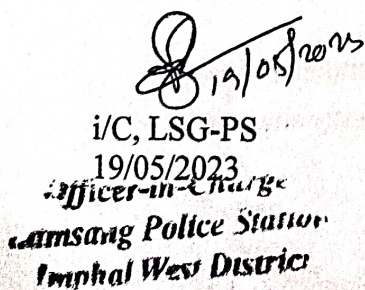 19/05/2023
i/C, LSG-PS
19/05/2023
Officer-in-Charge
Lamsang Police Station
Imphal West District